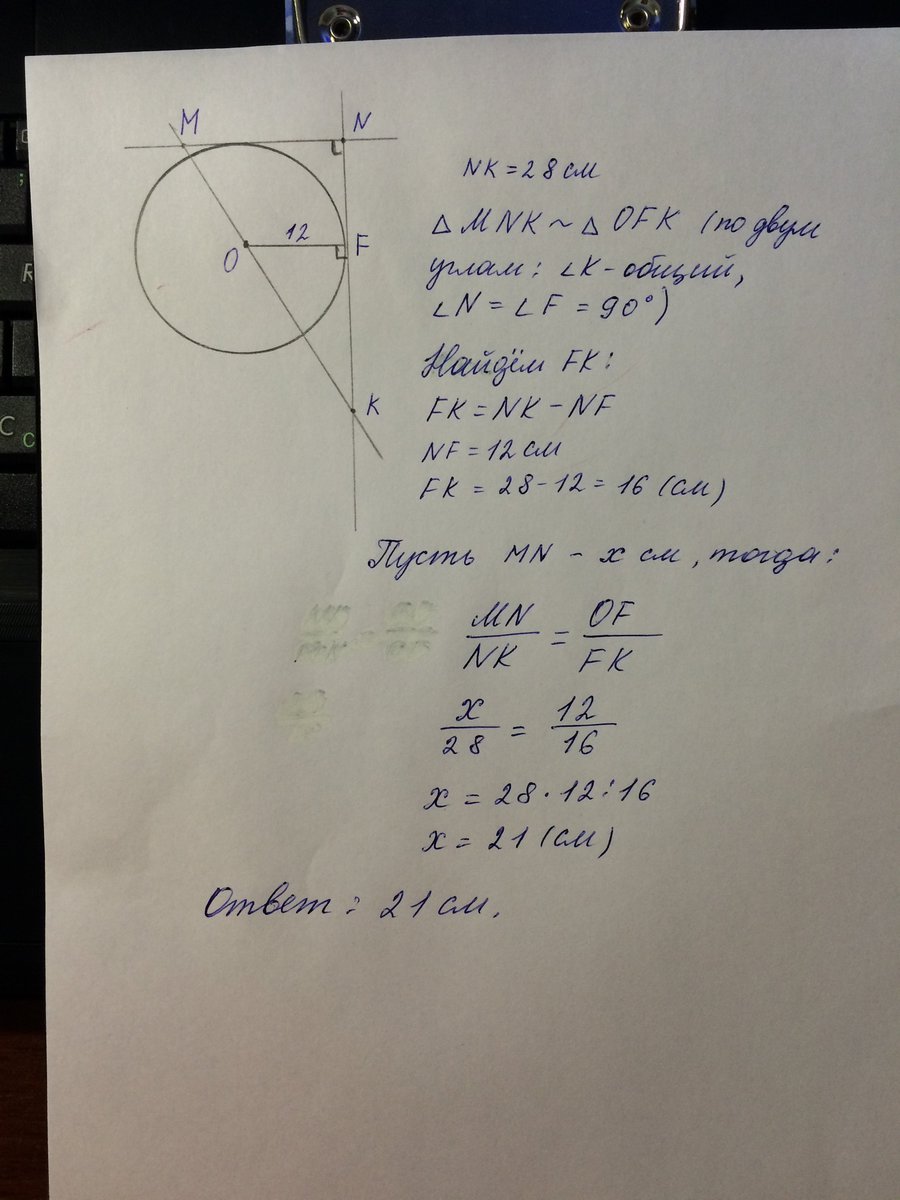 M
N
12
O
F
K
NK = 28 см
△ MNK ~ △ OFK (по двум
углам: ∠K - общий,
∠N = ∠F = 90°)
Найдём FK:
FK = NK - NF
NF = 12 см
FK = 28 - 12 = 16 (см)
Пусть MN - x см, тогда:
MN/NK = OF/FK
x/28 = 12/16
x = 28 · 12 : 16
x = 21 (см)
Ответ: 21 см.